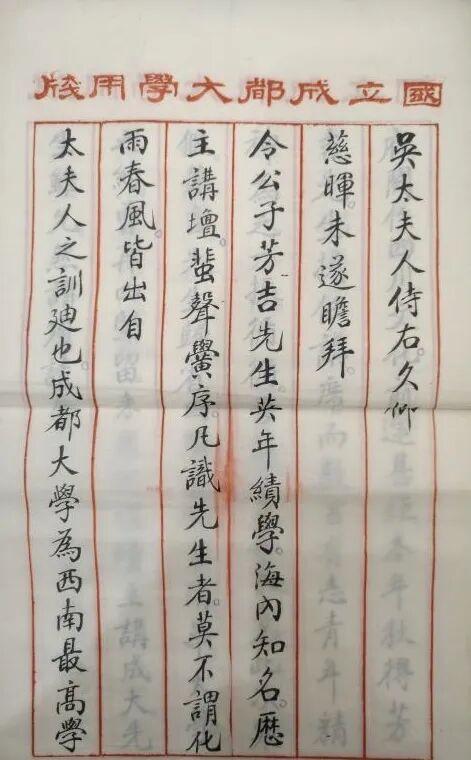 國立成都大學用牋
吳太夫人侍右。久仰
慈暉未遂瞻拜。
令公子芳吉先生英年績學。海內知名。歷
主講壇。蜚聲黌序。凡識先生者。莫不謂化
雨春風。皆出自
太夫人之訓廸也。成都大學為西南最高學